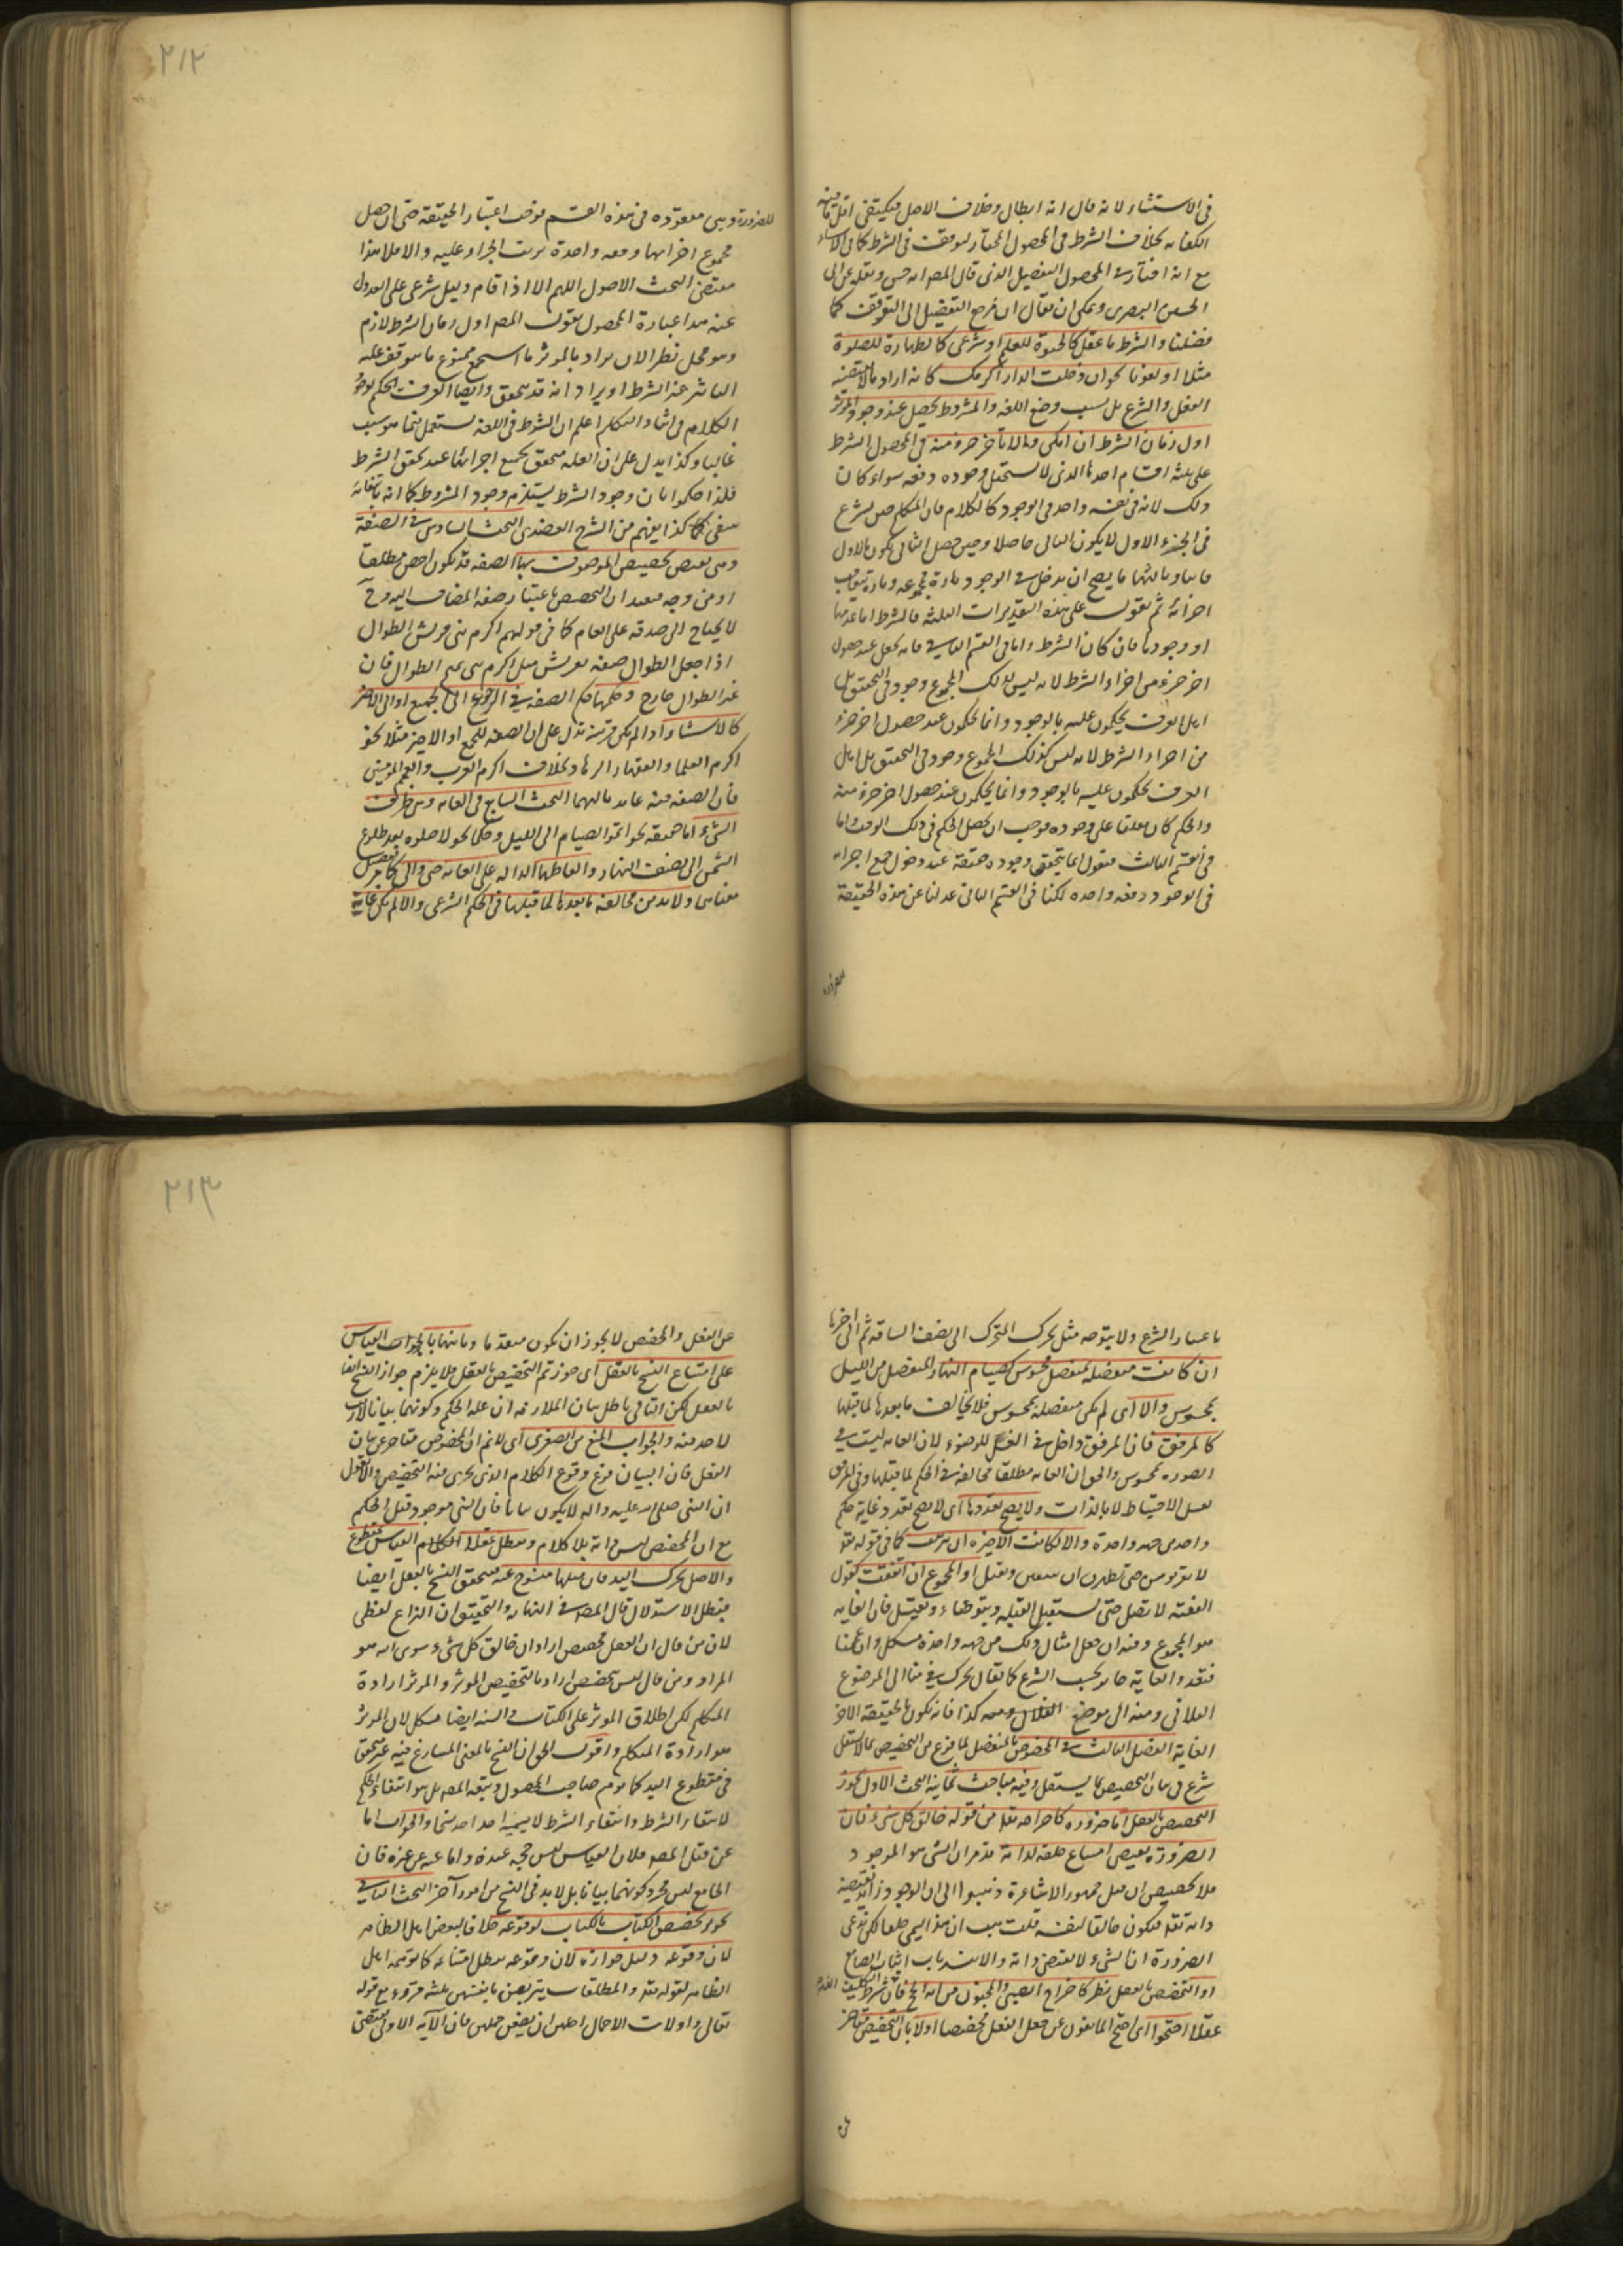 ٢١٢
في الاستثناء لانه قال انه ابطال وخلاف الاصل فيكتفى اقل
بخلاف الشرط في المحصول المختار لتوقف في الشرط كما في
مع انه اختار في المحصول التفصيل الذي قال المص انه حسن ونقله عن ابي
الحسين البصري ويمكن ان يقال ان مرجع التفصيل الى التوقف كما
فصلنا والشرط ما عقلي كالحيوة للعلم او شرعي كالطهارة للصلوة
مثلا او لغويا نحو ان دخلت الدار اكرمك كانه اراد ما لا يقتضيه
العقل والشرع بل بسبب وضع اللغة والمشروط يحصل عند وجود المؤثر
اول زمان الشرط ان امكن والا فآخر جزء منه في المحصول الشرط
على ثلثة اقسام احدها الذي لا يستحيل وجوده دفعة سواء كان
ذلك لانه في نفسه واحد في الوجود كالكلام فان المتكلم حين يشرع
في الجزء الاول لا يكون الثاني حاصلا وحين حصل الثاني يكون الاول
فانيا وثالثها ما يصح ان يدخل في الوجود تارة بمجموعه وتارة بتعاقب
اجزائه ثم نقول على هذه التقديرات الثلثة فالشرط اما عدمها
او وجودها فان كان الشرط واما في القسم الثاني فانه يحصل عند حصول
اخر جزء من اجزاء الشرط لانه ليس لذلك المجموع وجود في التحقيق بل
اهل العرف يحكمون عليه بالوجود وانما يحكمون عند حصول اخر جزء
من اجزاء الشرط لانه ليس كذلك المجموع وجود في التحقيق بل اهل
العرف يحكمون عليه بالوجود وانما يحكمون عند حصول اخر جزء منه
والحكم كان معلقا على وجوده فوجب ان يحصل الحكم في ذلك الوقت واما
في القسم الثالث فنقول انما يتحقق وجوده حقيقة عند دخول جميع اجزائه
في الوجود دفعة واحدة لكنا في القسم الثاني عدلنا عن هذه الحقيقة
للضرورة
للضرورة وهي مفقودة في هذه القسم فوجب اعتبار الحقيقة حتى ان حصل
مجموع اجزائها دفعة واحدة ترتب الجزاء عليه والا فلا هذا
مقتضى البحث الاصولي اللهم الا اذا قام دليل شرعي على العدول
عنه هذا عبارة المحصول فقول المص اول زمان الشرط لازم
وهو محل نظر الا ان يراد بالمؤثر ما استجمع جميع ما يتوقف عليه
التاثير غير الشرط او يراد انه قد يتحقق وايضا العرف يحكم بوجود
الكلام في اثناء التكلم اعلم ان الشرط في اللغة يستعمل فيما هو سبب
غالبا وكذا يدل على ان العلة يتحقق بجميع اجزائها عند تحقق الشرط
فلذا حكموا بان وجود الشرط يستلزم وجود المشروط كما انه بانتفائه
ينتفي كما كذا يفهم من الشرح العضدي البحث السادس في الصفة
وهي تقتضي تخصيص الموصوف بها الصفة قد تكون اخص مطلقا
او من وجه فبعد ان التخصيص باعتبار صفة المضاف اليه وح
لا يحتاج الى صدقه على العام كما في قولهم اكرم بني قريش الطوال
اذا جعل الطوال صفة لقريش مثل اكرم بني تميم الطوال فان
غير الطوال خارج وحكمها حكم الصفة في الرجوع الى الجميع او الى الاخير
كالاستثناء اذا لم يكن قرينة تدل على ان الصفة للجميع او الاخير مثلا نحو
اكرم العلما والفقهاء الزهاد بخلاف اكرم العرب والعجم المؤمنين
فان الصفة فيه عايد اليهما البحث السابع في الغاية وهي طرف
الشيء اما حقيقة نحو اتموا الصيام الى الليل وحكما نحو لا صلوة بعد طلوع
الشمس الى نصف النهار والفاظها الدالة على الغاية حتى والى كما
معناها ولابد من مخالفة ما بعدها لما قبلها في الحكم الشرعي والا لم يكن غاية
٢١٣
باعتبار الشرع ولا يتوجه مثل تحرك المتحرك الى نصف المسافة ثم الى اخرها
ان كانت منفصلة بمنفصل محسوس كصيام النهار المنفصل من الليل
بمحسوس والا اي لم يكن منفصلة بمحسوس فلا يخالف ما بعدها لما قبلها
كالمرفق فان المرفق داخل في الغسل للوضوء لان الغاية ليست في
الصورة بمحسوس والحق ان الغاية مطلقا مخالفة في الحكم لما قبلها وفي المرفق
يغسل للاحتياط لا بالذات ولا يصح تعددها اي لا يصح تعدد غاية حكم
واحد من جهة واحدة والا لكانت الاخيرة ان ترتبت كما في قوله تعالى
لا تقربوهن حتى يطهرن او المجموع ان اتفقت كقول
الفقيه لا تصل حتى تستقبل القبلة وتتوضاء وتغتسل فان الغاية
هو المجموع وفيه ان جعل امثال ذلك من جهة واحدة مشكل وان عممنا
فتعدد الغاية جائز بحسب الشرع كما يقال تحرك من هنا الى الموضع
الفلاني ومنه الى موضع الفلان ومعه كذا فانه يكون بالحقيقة الاخر
الغاية الفصل الثالث في المخصوص بالمنفصل لما فرغ من التخصيص بما لا يستقل
شرع في بيان التخصيص بما يستقل وفيه مباحث ثمانية البحث الاول يجوز
التخصيص بالعقل اما ضرورة كاخراجه تعالى من قوله خالق كل شيء فان
الضرورة يقتضي امتناع خلقه لذاته قد مر ان الشيء هو الموجود
فلا تخصيص ان قيل جمهور الاشاعرة ذهبوا الى ان الوجود زايد يقتضيه
ذاته تعالى فيكون خالقا لنفسه قلت هب ان هذا يسمى خلقا لكن ندعي
الضرورة ان الشيء لا يقتضي ذاته والا انسد باب اثبات الصانع
او التخصيص بالعقل نظر كاخراج الصبي والمجنون من اية الحج فان شرط التكليف الفهم
عقلا احتجوا اي احتج المانعون عن جعل العقل مخصصا اولا بان التخصيص متاخر
عن
عن العقل والمخصص لا يجوز ان يكون متقدما وثانيها بالجواب القياس
على امتناع النسخ بالعقل اي لو جوزتم التخصيص بالعقل فلا يلزم جواز النسخ ايضا
بالعقل لكن التالي باطل بيان الملازمة ان علة الحكم وكونهما بيانا لازم
لاحد منه والجواب المنع من الصغرى اي لا نم ان المخصوص متاخر عن بيان
العقل فان البيان فرع وقوع الكلام الذي يجري فيه التخصيص والا لقيل
ان النبي صلى الله عليه واله لا يكون بيانا فان النبي موجود قبل الحكم
مع ان المخصص ليس ذاته بلا كلام ويبطل بمقطوع
والاصل تحرك اليد فان غسلها منسوخ عنه فيتحقق النسخ بالعقل ايضا
فيبطل الاستدلال قال المصنف في النهاية والتحقيق ان النزاع لفظي
لان من قال ان العقل مخصص اراد ان خالق كل شيء سوى الله هو
المراد ومن قال ليس بتخصيص اراد بالتخصيص المؤثر والمؤثر ارادة
المتكلم لكن اطلاق المؤثر على الكتاب والسنة ايضا مشكل لان المؤثر
هو ارادة المتكلم واقول الحق ان النسخ بالمعنى المتنازع فيه غير متحقق
في مقطوع اليد كما توهم صاحب المحصول وتبعه المص بل هو انتفاء الحكم
لانتفاء الشرط وانتفاء الشرط لا يسميه احد احد نسخا والجواب اما
عن قبل المص فلان القياس ليس حجة عنده واما عن غيره فان
الجامع ليس مجرد كونهما بيانا بل لابد في النسخ من امور آخر البحث الثاني في
يجوز تخصيص الكتاب بالكتاب لوقوعه خلافا لبعض اهل الظاهر
لان وقوعه دليل جوازه لان وقوعه يبطل امتناعه كما توهمه اهل
الظاهر لقوله تعالى والمطلقات يتربصن بانفسهن ثلثة قروء مع قوله
تعالى واولات الاحمال اجلهن ان يضعن حملهن فان الآية الاولى يقتضي